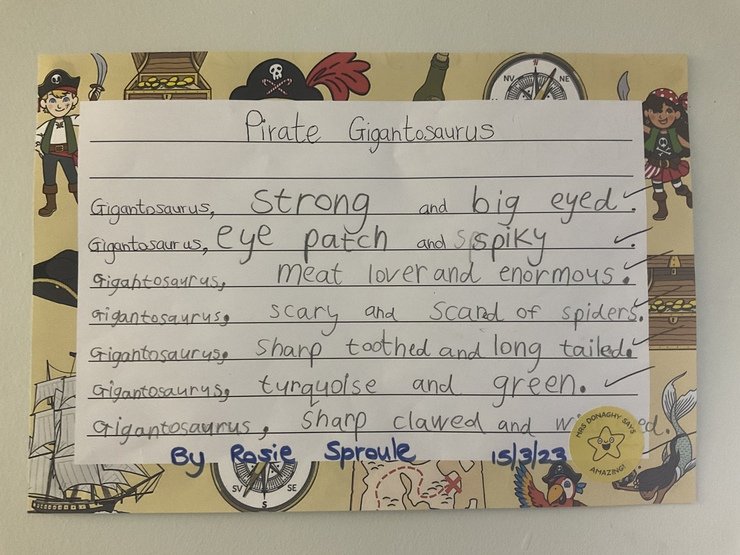 NV NE
Pirate Gigantosaurus
Gigantosaurus, strong and big eyed.
Gigantosaurus, eye patch and spiky.
Gigantosaurus, meat lover and enormous.
Gigantosaurus, scary and scared of spiders.
Gigantosaurus, sharp toothed and long tailed.
Gigantosaurus, turquoise and green.
Gigantosaurus, sharp clawed and
MRS DONAGHY SAYS
AMAZING!
By Rosie Sproule 15/3/23
SV SE
S